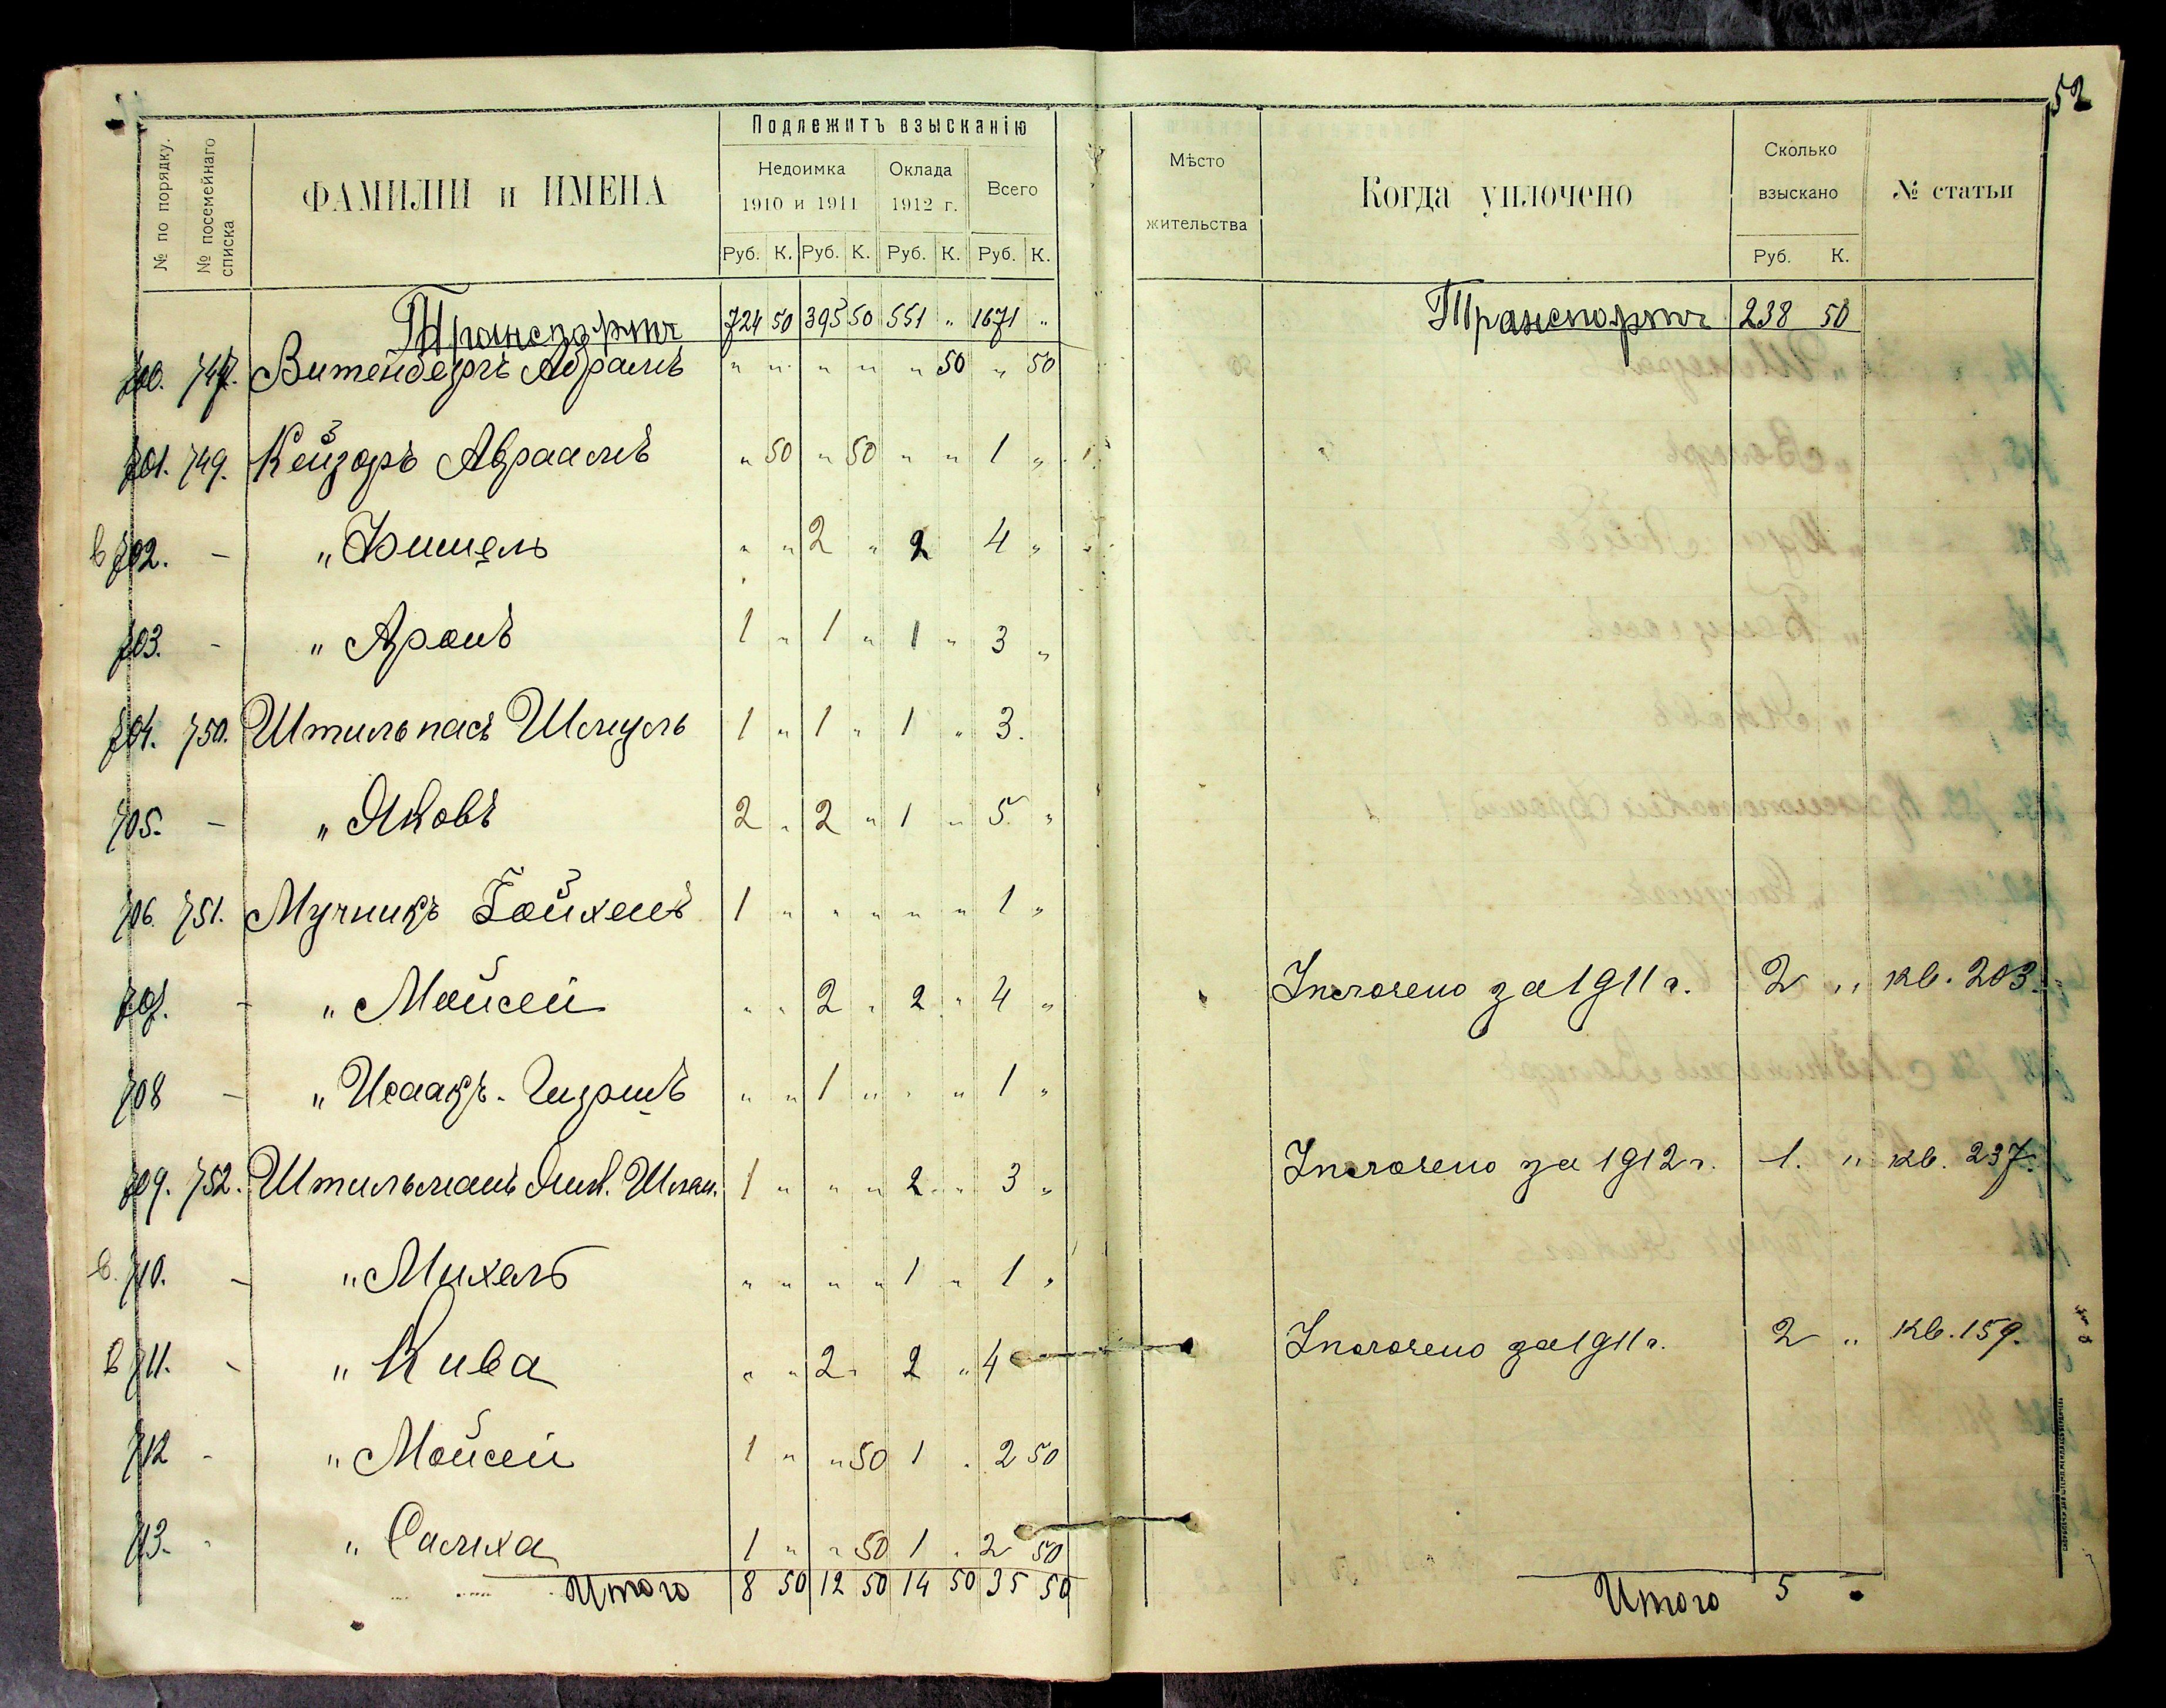 52
№ по порядку.
№ посемейнаго списка
ФАМИЛІИ и ИМЕНА
Подлежитъ взысканію
Недоимка 1910 и 1911
Оклада 1912 г.
Всего
Руб. К. Руб. К. Руб. К. Руб. К.
Мѣсто жительства
Когда уплочено
Сколько взыскано
Руб. К.
№ статьи
Транспортъ 724 50 395 50 551 " 1671 " Транспортъ 238 50
700. 747. Витенбергъ Абрамъ " " " " " 50 " 50
701. 749. Кейзоръ Авраамъ " 50 " 50 " " 1 "
в 702. - " Фишель " " 2 " 2 4 "
703. - " Аронъ 1 " 1 " 1 " 3 "
704. 750. Штильпасъ Шмуль 1 " 1 " 1 " 3.
705. - " Яковъ 2 " 2 " 1 " 5 "
706. 751. Мучникъ 1 " " " " " 1 "
707. - " Мойсей " " 2 " 2 " 4 " Уплочено за 1911 г. 2 " кв. 203.
708 - " Исаакъ-Гиршъ " " 1 " " " 1 "
709. 752. Штильманъ 1 " " " 2 " 3 " Уплочено за 1912 г. 1. " кв. 237.
в. 710. - " Михель " " " " 1 " 1 "
в 711. - " Кива " " 2 " 2 " 4 Уплочено за 1911 г. 2 " кв. 159.
712 - " Мойсей 1 " " 50 1 " 2 50
713. - " Салиха 1 " " 50 1 " 2 50
Итого 8 50 12 50 14 50 35 50 Итого 5 -